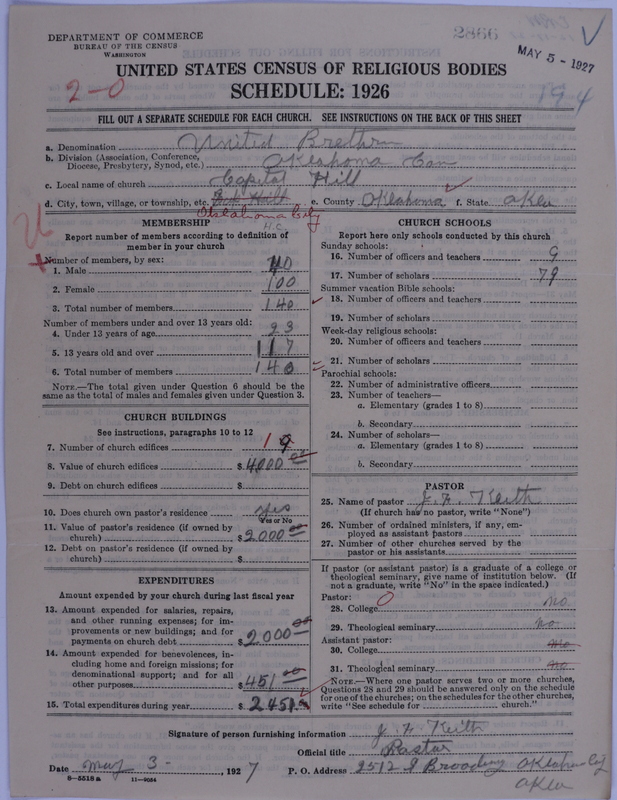 DEPARTMENT OF COMMERCE
BUREAU OF THE CENSUS
WASHINGTON
2866
MAY 5 - 1927
UNITED STATES CENSUS OF RELIGIOUS BODIES
SCHEDULE: 1926
2-0
194
FILL OUT A SEPARATE SCHEDULE FOR EACH CHURCH. SEE INSTRUCTIONS ON THE BACK OF THIS SHEET
a. Denomination United Brethrn
b. Division (Association, Conference, Diocese, Presbytery, Synod, etc.) Oklahoma Con
c. Local name of church Capital Hill
d. City, town, village, or township, etc. Oklahoma City e. County Oklahoma f. State Okla
MEMBERSHIP
Report number of members according to definition of
member in your church
Number of members, by sex:
1. Male 40
2. Female 100
3. Total number of members 140
Number of members under and over 13 years old:
4. Under 13 years of age 23
5. 13 years old and over 117
6. Total number of members 140
NOTE.—The total given under Question 6 should be the
same as the total of males and females given under Question 3.
CHURCH BUILDINGS
See instructions, paragraphs 10 to 12
7. Number of church edifices 1
8. Value of church edifices $ 4000 00
9. Debt on church edifices $
10. Does church own pastor's residence yes
Yes or No
11. Value of pastor's residence (if owned by
church) $ 2000 00
12. Debt on pastor's residence (if owned by
church) $
EXPENDITURES
Amount expended by your church during last fiscal year
13. Amount expended for salaries, repairs,
and other running expenses; for im-
provements or new buildings; and for
payments on church debt $ 2000 00
14. Amount expended for benevolences, in-
cluding home and foreign missions; for
denominational support; and for all
other purposes $ 451 00
15. Total expenditures during year $ 2451
CHURCH SCHOOLS
Report here only schools conducted by this church
Sunday schools:
16. Number of officers and teachers 9
17. Number of scholars 79
Summer vacation Bible schools:
18. Number of officers and teachers
19. Number of scholars
Week-day religious schools:
20. Number of officers and teachers
21. Number of scholars
Parochial schools:
22. Number of administrative officers
23. Number of teachers—
a. Elementary (grades 1 to 8)
b. Secondary
24. Number of scholars—
a. Elementary (grades 1 to 8)
b. Secondary
PASTOR
25. Name of pastor J. F. Keith
(If church has no pastor, write "None")
26. Number of ordained ministers, if any, em-
ployed as assistant pastors
27. Number of other churches served by the
pastor or his assistants
If pastor (or assistant pastor) is a graduate of a college or
theological seminary, give name of institution below. (If
not a graduate, write "No" in the space indicated.)
Pastor:
28. College no
29. Theological seminary no
Assistant pastor:
30. College no
31. Theological seminary no
NOTE.—Where one pastor serves two or more churches,
Questions 28 and 29 should be answered only on the schedule
for one of the churches; on the schedules for the other churches,
write "See schedule for church."
Signature of person furnishing information J. F. Keith
Official title Pastor
Date May 3 - , 1927 P. O. Address 2512 S Broadway Oklahoma City
Okla
8-5518a 11-9084